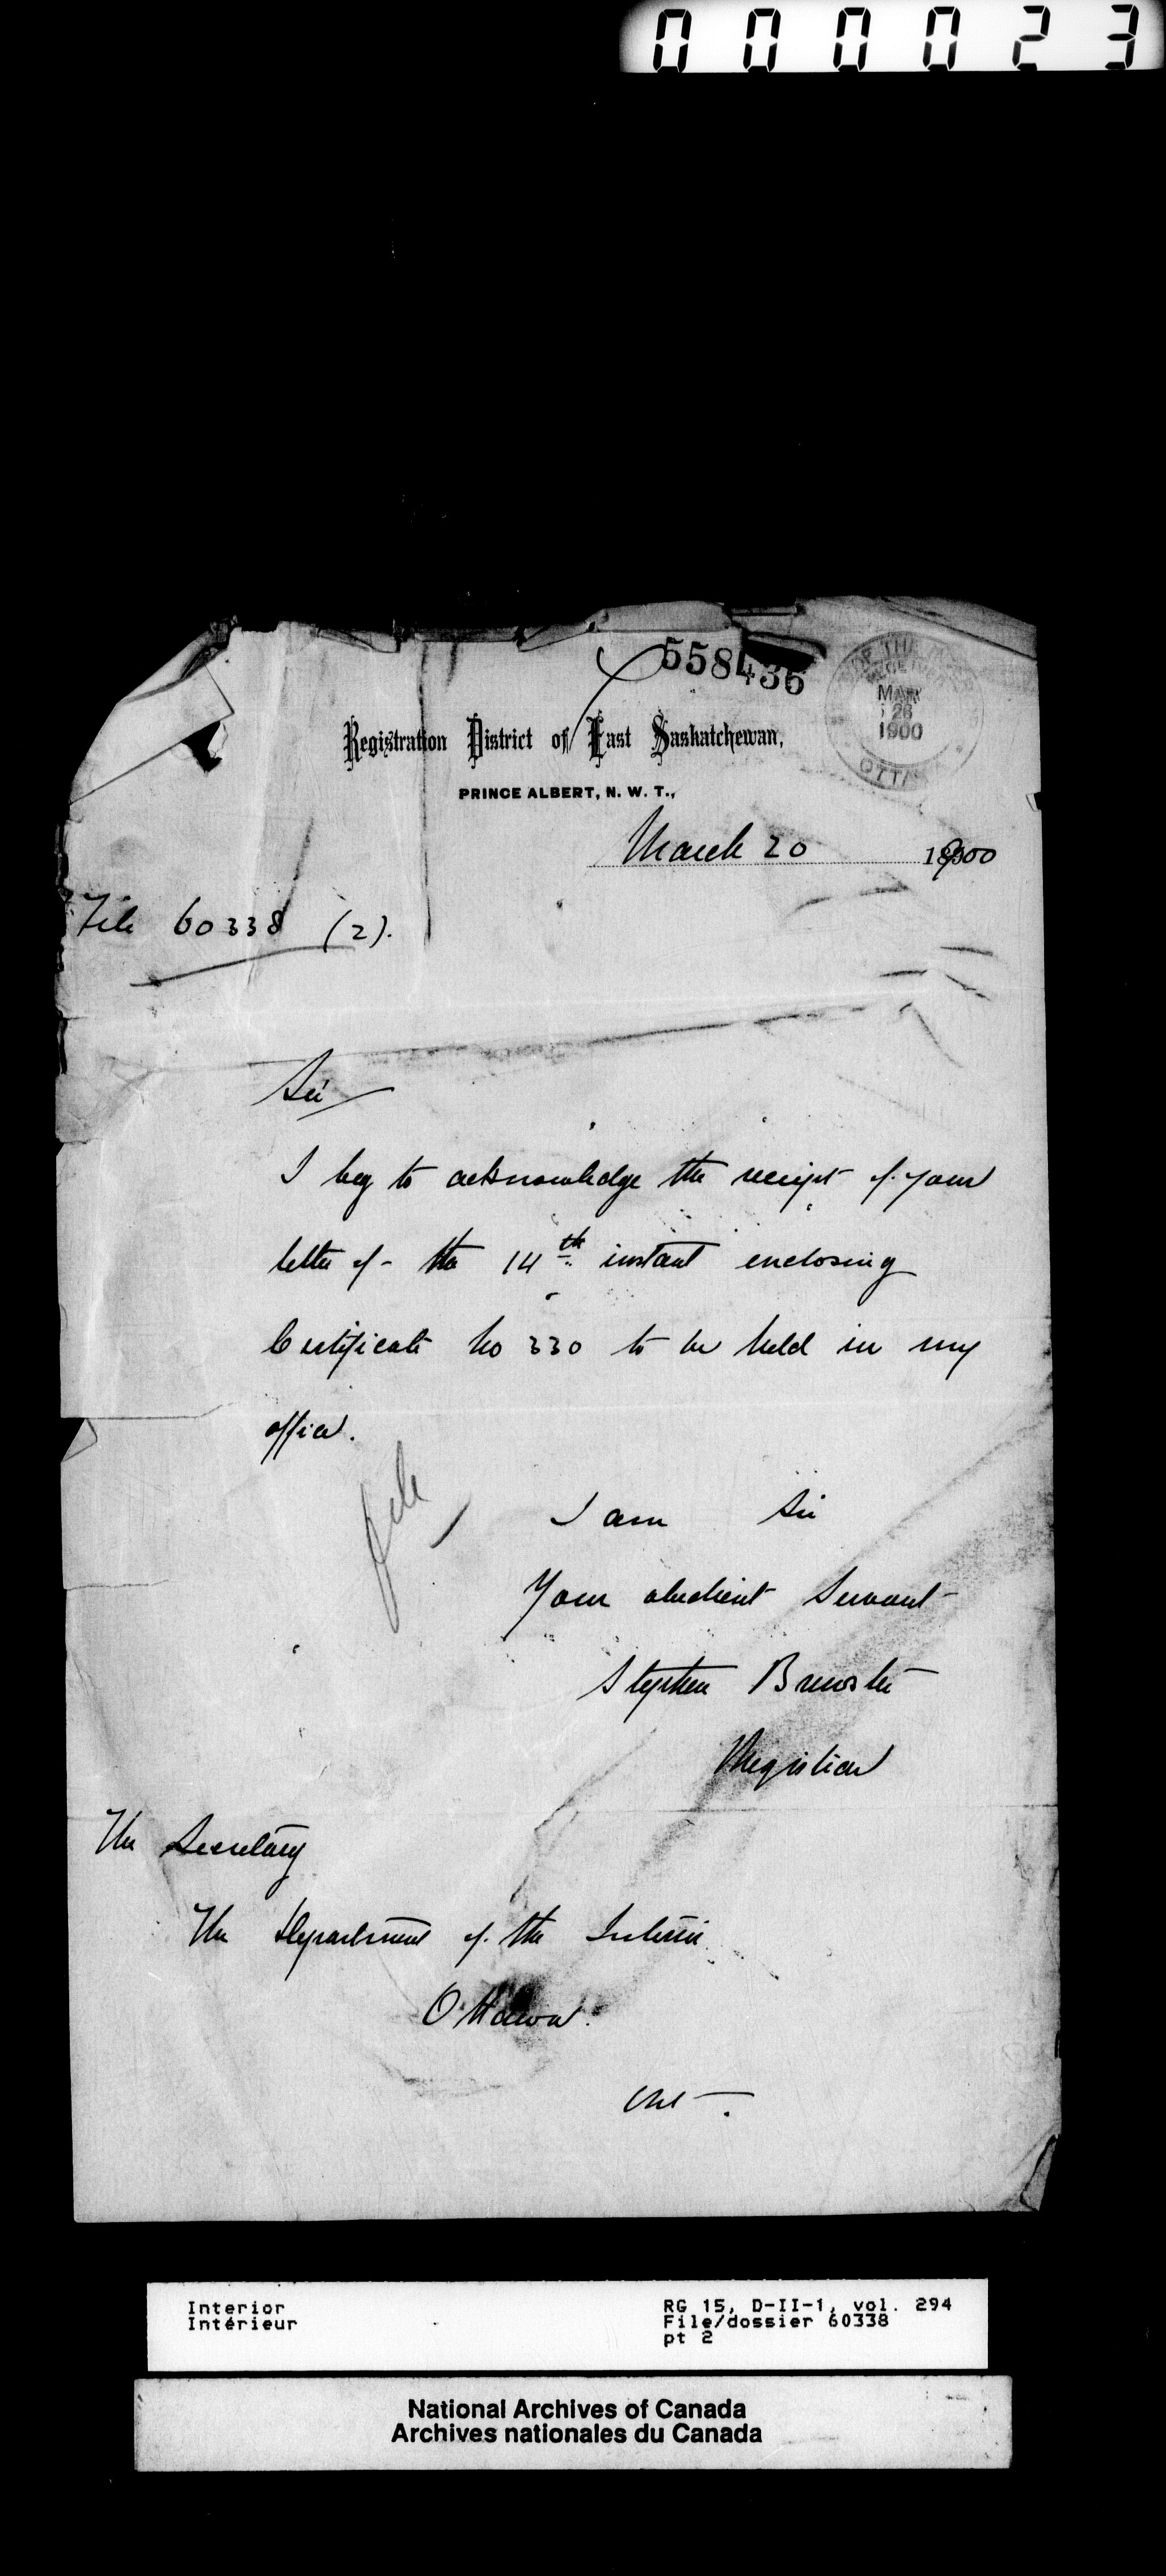 000023
558436
MAR
26
1900
OTTAWA
Registration District of East Saskatchewan,
PRINCE ALBERT, N. W. T.,
March 20 1900
File 60338 (2).
Sir
I beg to acknowledge the receipt of your
letter of the 14th instant enclosing
Certificate No 330 to be held in my
office.
file
I am Sir
Your obedient Servant
Stephen Brewster
Registrar
The Secretary
The Department of the Interior
Ottawa.
Ont.
Interior
Intérieur
RG 15, D-II-1, vol. 294
File/dossier 60338
pt 2
National Archives of Canada
Archives nationales du Canada